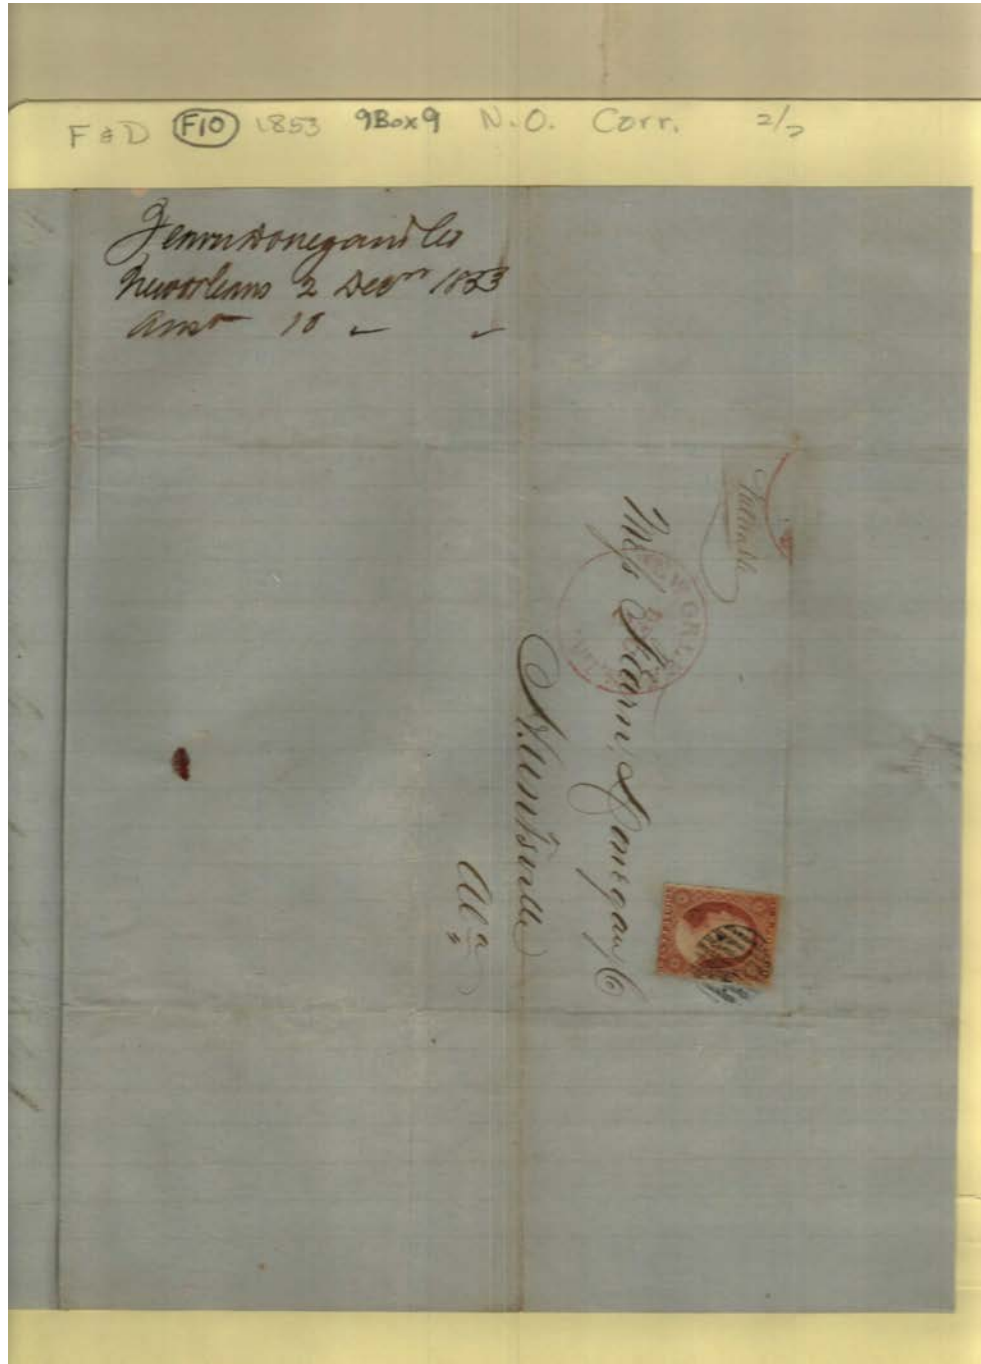 F & D F10 1853 9Box9 N.O. Corr. 2/2
Fearn Donegan & Co
New Orleans 2 Decr 1853
Ansd 10 " "
Mess Fearn, Donegan & Co
Huntsville
Ala
NEW ORLEANS